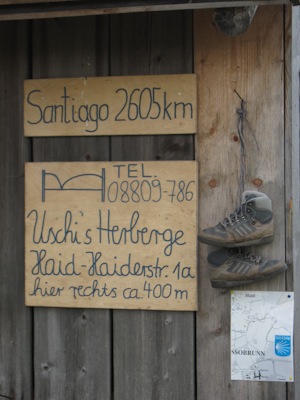 Santiago 2605km
TEL.
08809-786
Uschi's Herberge
Haid-Haiderstr. 1a
hier rechts ca 400m
SSOBRUNN